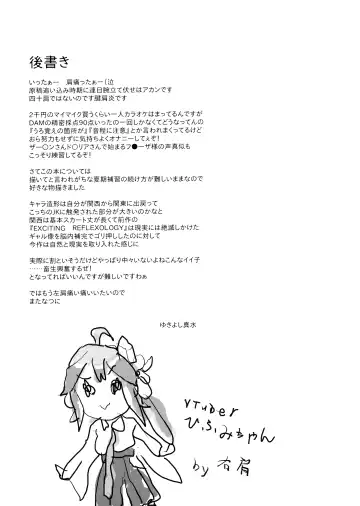 後書き
いったぁー　肩痛ったぁー(泣
原稿追い込み時期に連日腕立て伏せはアカンです
四十肩ではないのです腱肩炎です
2千円のマイマイク買うくらい一人カラオケはまってるんですが
DAMの精密採点90点いったの一回しかなくてどうなってんの
『うろ覚えの箇所が』『音程に注意』とか言われまくってるけど
おら努力もせずに気持ちよくオナニーしてぇぞ!
ザー〇ンさんド〇リアさんで始まるフ●ーザ様の声真似も
こっそり練習してるぞ!
さてこの本については
描いてと言われがちな夏期補習の続け方が難しいままなので
好きな物描きました
キャラ造形は自分が関西から関東に出戻って
こっちのJKに触発された部分が大きいのかなと
関西は基本スカート丈が長くて前作の
『EXCITING REFLEXOLOGY』は現実には絶滅しかけた
ギャル像を脳内補完でゴリ押ししたのに対して
今作は自然と現実を取り入れた感じに
実際に割といそうだけどやっぱり中々いないよねこんなイイ子
……畜生興奮するぜ!
となっていればいいんですが難しいですわぁ
ではもう左肩痛い痛いいたいので
またなつに
ゆきよし真水
VTuber
ひふみちゃん
by 右肩